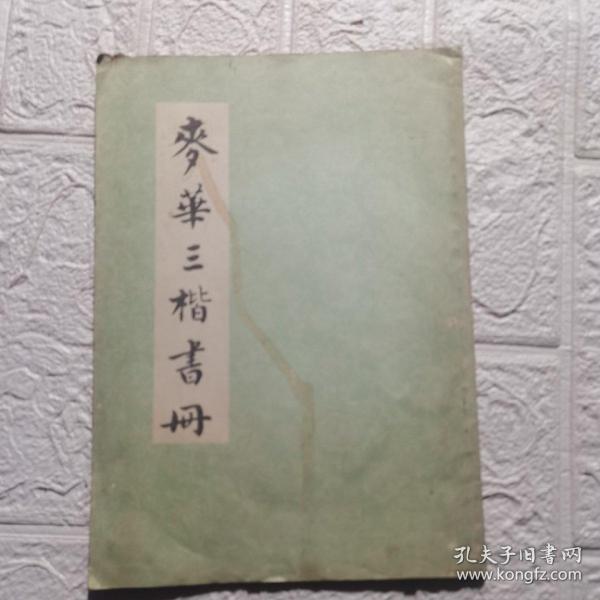 麥華三楷書冊
孔夫子旧书网
www.kongfz.com